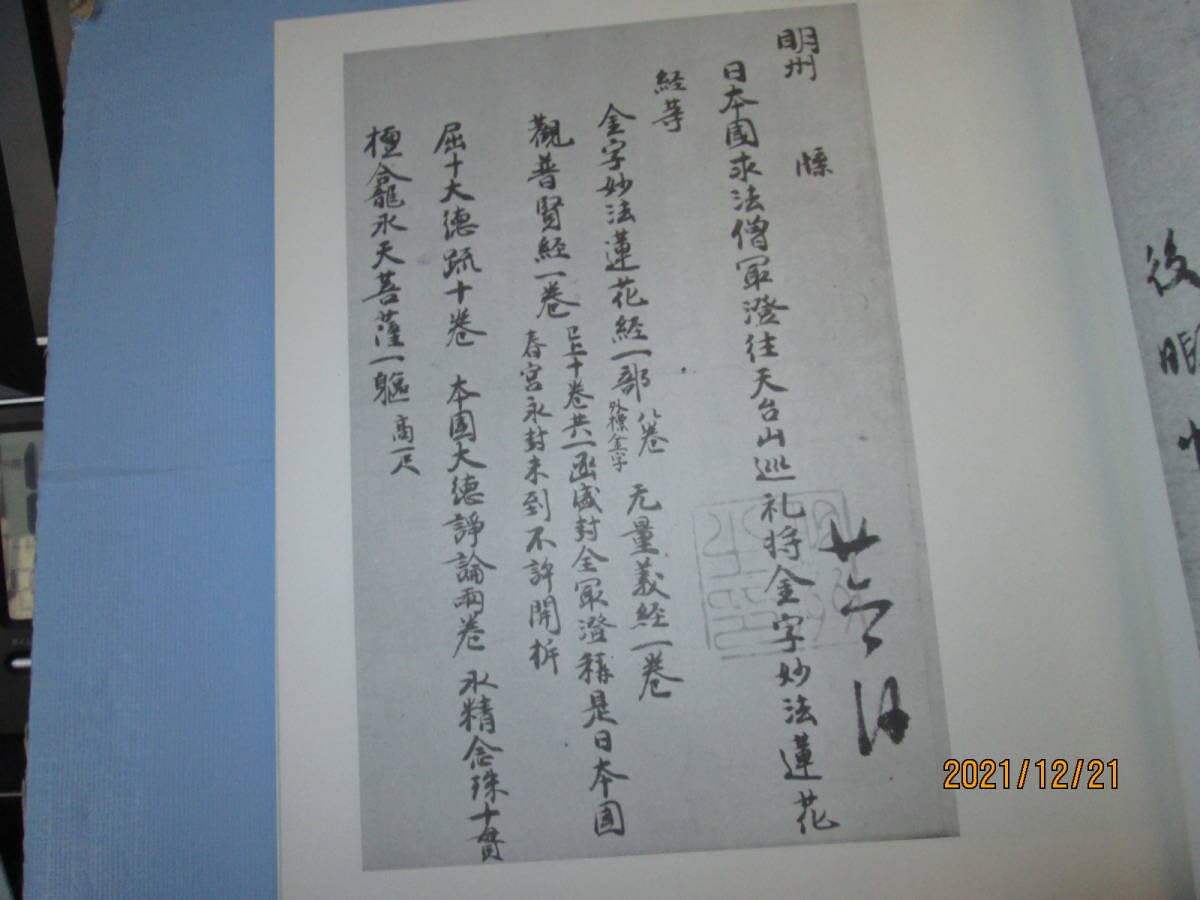 明州 牒
廿六日
日本國求法僧冣澄往天台山巡礼将金字妙法蓮花
経等
金字妙法蓮花経一部 八卷 外標金字 无量義経一卷
觀普賢経一卷 已上十卷共一函盛封全冣澄稱是日本國
春宮永封未到不許開㭊
屈十大德䟽十卷 本國大德諍論兩卷 水精念珠十貫
檀龕水天菩薩一軀 高一尺
後
眼
2021/12/21